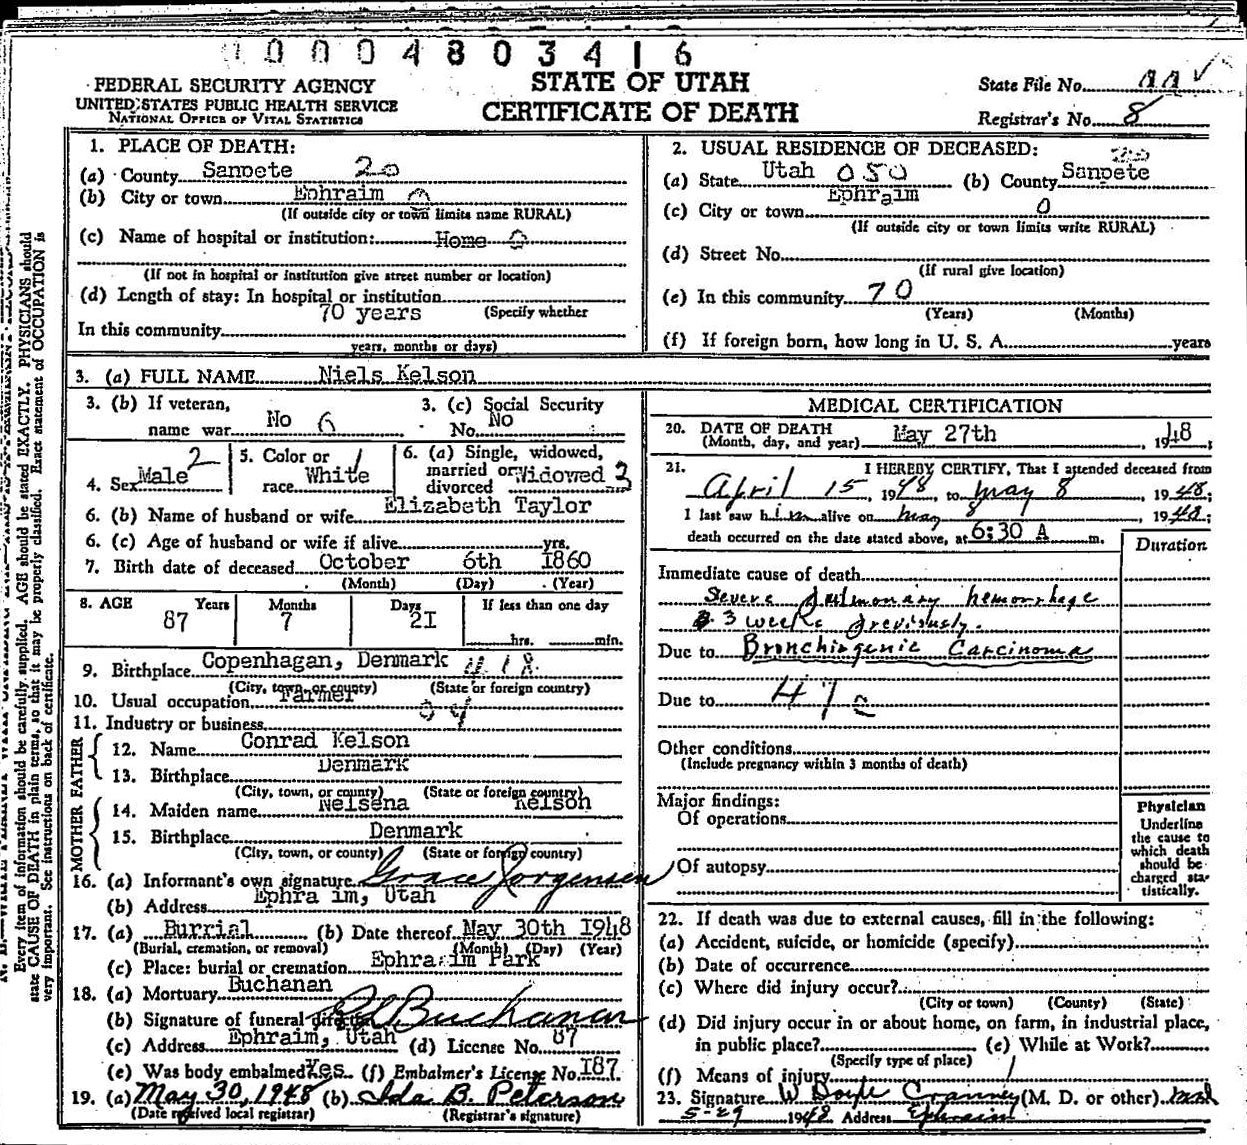 0 0 0 4 8 0 3 4 1 6
FEDERAL SECURITY AGENCY
UNITED STATES PUBLIC HEALTH SERVICE
NATIONAL OFFICE OF VITAL STATISTICS
STATE OF UTAH
CERTIFICATE OF DEATH
State File No.
Registrar's No. 8
Every item of information should be carefully supplied. AGE should be stated EXACTLY. PHYSICIANS should
state CAUSE OF DEATH in plain terms, so that it may be properly classified. Exact statement of OCCUPATION is
very important. See instructions on back of certificate.
1. PLACE OF DEATH:
(a) County Sanpete 20
(b) City or town Ephraim 0
(If outside city or town limits name RURAL)
(c) Name of hospital or institution: Home 0
(If not in hospital or institution give street number or location)
(d) Length of stay: In hospital or institution
70 years (Specify whether
In this community
years, months or days)
2. USUAL RESIDENCE OF DECEASED:
(a) State Utah 050 (b) County Sanpete
(c) City or town Ephraim 0
(If outside city or town limits write RURAL)
(d) Street No.
(If rural give location)
(e) In this community 70
(Years) (Months)
(f) If foreign born, how long in U. S. A. years
3. (a) FULL NAME Niels Kelson
3. (b) If veteran, name war No 6
3. (c) Social Security No. No
4. Sex Male 2
5. Color or race White 1
6. (a) Single, widowed, married or divorced Widowed 3
6. (b) Name of husband or wife Elizabeth Taylor
6. (c) Age of husband or wife if alive yrs.
7. Birth date of deceased October 6th 1860
(Month) (Day) (Year)
8. AGE Years Months Days If less than one day
87 7 21 hrs. min.
9. Birthplace Copenhagan, Denmark
(City, town, or county) (State or foreign country)
10. Usual occupation Farmer
11. Industry or business
FATHER
12. Name Conrad Kelson
13. Birthplace Denmark
(City, town, or county) (State or foreign country)
MOTHER
14. Maiden name Nelsena Kelson
15. Birthplace Denmark
(City, town, or county) (State or foreign country)
16. (a) Informant's own signature Grace Jorgensen
(b) Address Ephra im, Utah
17. (a) Burrial (b) Date thereof May 30th 1948
(Burial, cremation, or removal) (Month) (Day) (Year)
(c) Place: burial or cremation Ephraim Park
18. (a) Mortuary Buchanan
(b) Signature of funeral director Buchanan
(c) Address Ephraim, Utah (d) License No. 87
(e) Was body embalmed Yes (f) Embalmer's License No. 187
19. (a) May 30, 1948 (b) Ida B. Peterson
(Date received local registrar) (Registrar's signature)
MEDICAL CERTIFICATION
20. DATE OF DEATH
(Month, day, and year) May 27th, 1948;
21. I HEREBY CERTIFY, That I attended deceased from
April 15, 1948, to May 8, 1948;
I last saw him alive on May 8, 1948;
death occurred on the date stated above, at 6:30 A m.
Duration
Immediate cause of death
Severe pulmonary hemorrhage
3 weeks previously.
Due to Bronchiogenic Carcinoma
Due to 47c
Other conditions
(Include pregnancy within 3 months of death)
Major findings:
Of operations
Of autopsy
Physician
Underline
the cause to
which death
should be
charged sta-
tistically.
22. If death was due to external causes, fill in the following:
(a) Accident, suicide, or homicide (specify)
(b) Date of occurrence
(c) Where did injury occur?
(City or town) (County) (State)
(d) Did injury occur in or about home, on farm, in industrial place,
in public place? (e) While at Work?
(Specify type of place)
(f) Means of injury
23. Signature W Doyle Cranney (M. D. or other) Md
5-29 1948 Address Ephraim